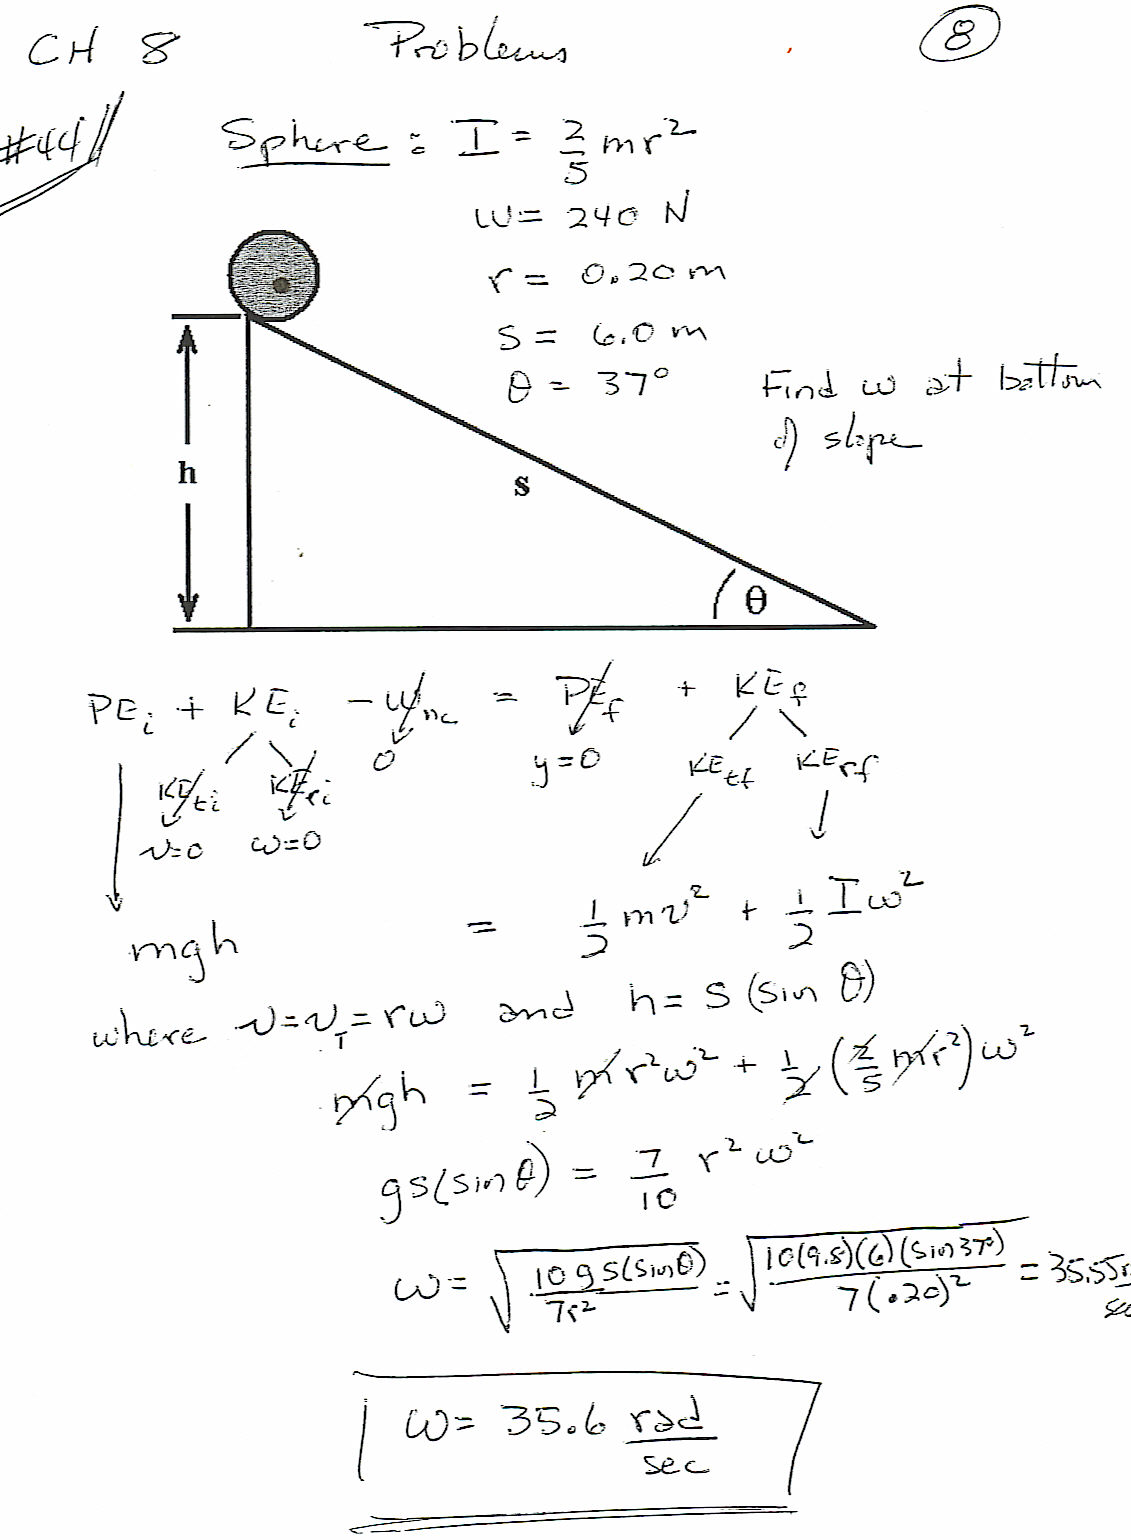 CH 8 Problems 8
#44
Sphere : I = 2/5 mr²
w = 240 N
r = 0.20 m
s = 6.0 m
θ = 37°
Find ω at bottom
of slope
h
s
θ
PEᵢ + KEᵢ - Wnc = PEf + KEf
KEti KEri 0 y=0 KEtf KErf
v=0 ω=0
mgh = 1/2 mv² + 1/2 Iω²
where v = vT = rω and h = s (sin θ)
mgh = 1/2 m r²ω² + 1/2 (2/5 mr²) ω²
gs(sin θ) = 7/10 r² ω²
ω = √(10 g s(sin θ) / 7r²) = √(10(9.8)(6)(sin 37°) / 7(.20)²) = 35.55
ω = 35.6 rad/sec